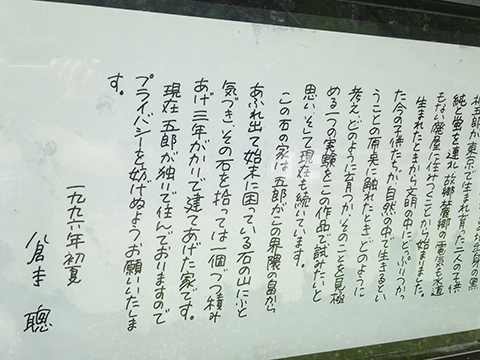 の出身の黒
板五郎が東京で生まれ育った二人の子供
純と蛍を連れ 故郷 麓郷の電気も水道
もない廃屋に住みつくことから始まりました。
生まれたときから文明の中にどっぷりつかっ
た今の子供たちが、自然の中で生きるとい
うことの原点に触れたとき どのように
考え どのように育つか、そのことを見極
める一つの実験をこの作品で試みたいと
思い、そして現在も続いています。
この石の家は、五郎がこの界隈の畠から
あふれ出て始末に困っている石の山にふと
気づき、その石を拾っては一個づつ積み
あげ 三年がかりで建てあげた家です。
現在 五郎が独りで住んでおりますので
プライバシーを妨げぬようお願いいたしま
す。
一九九六年 初夏
倉本 聰